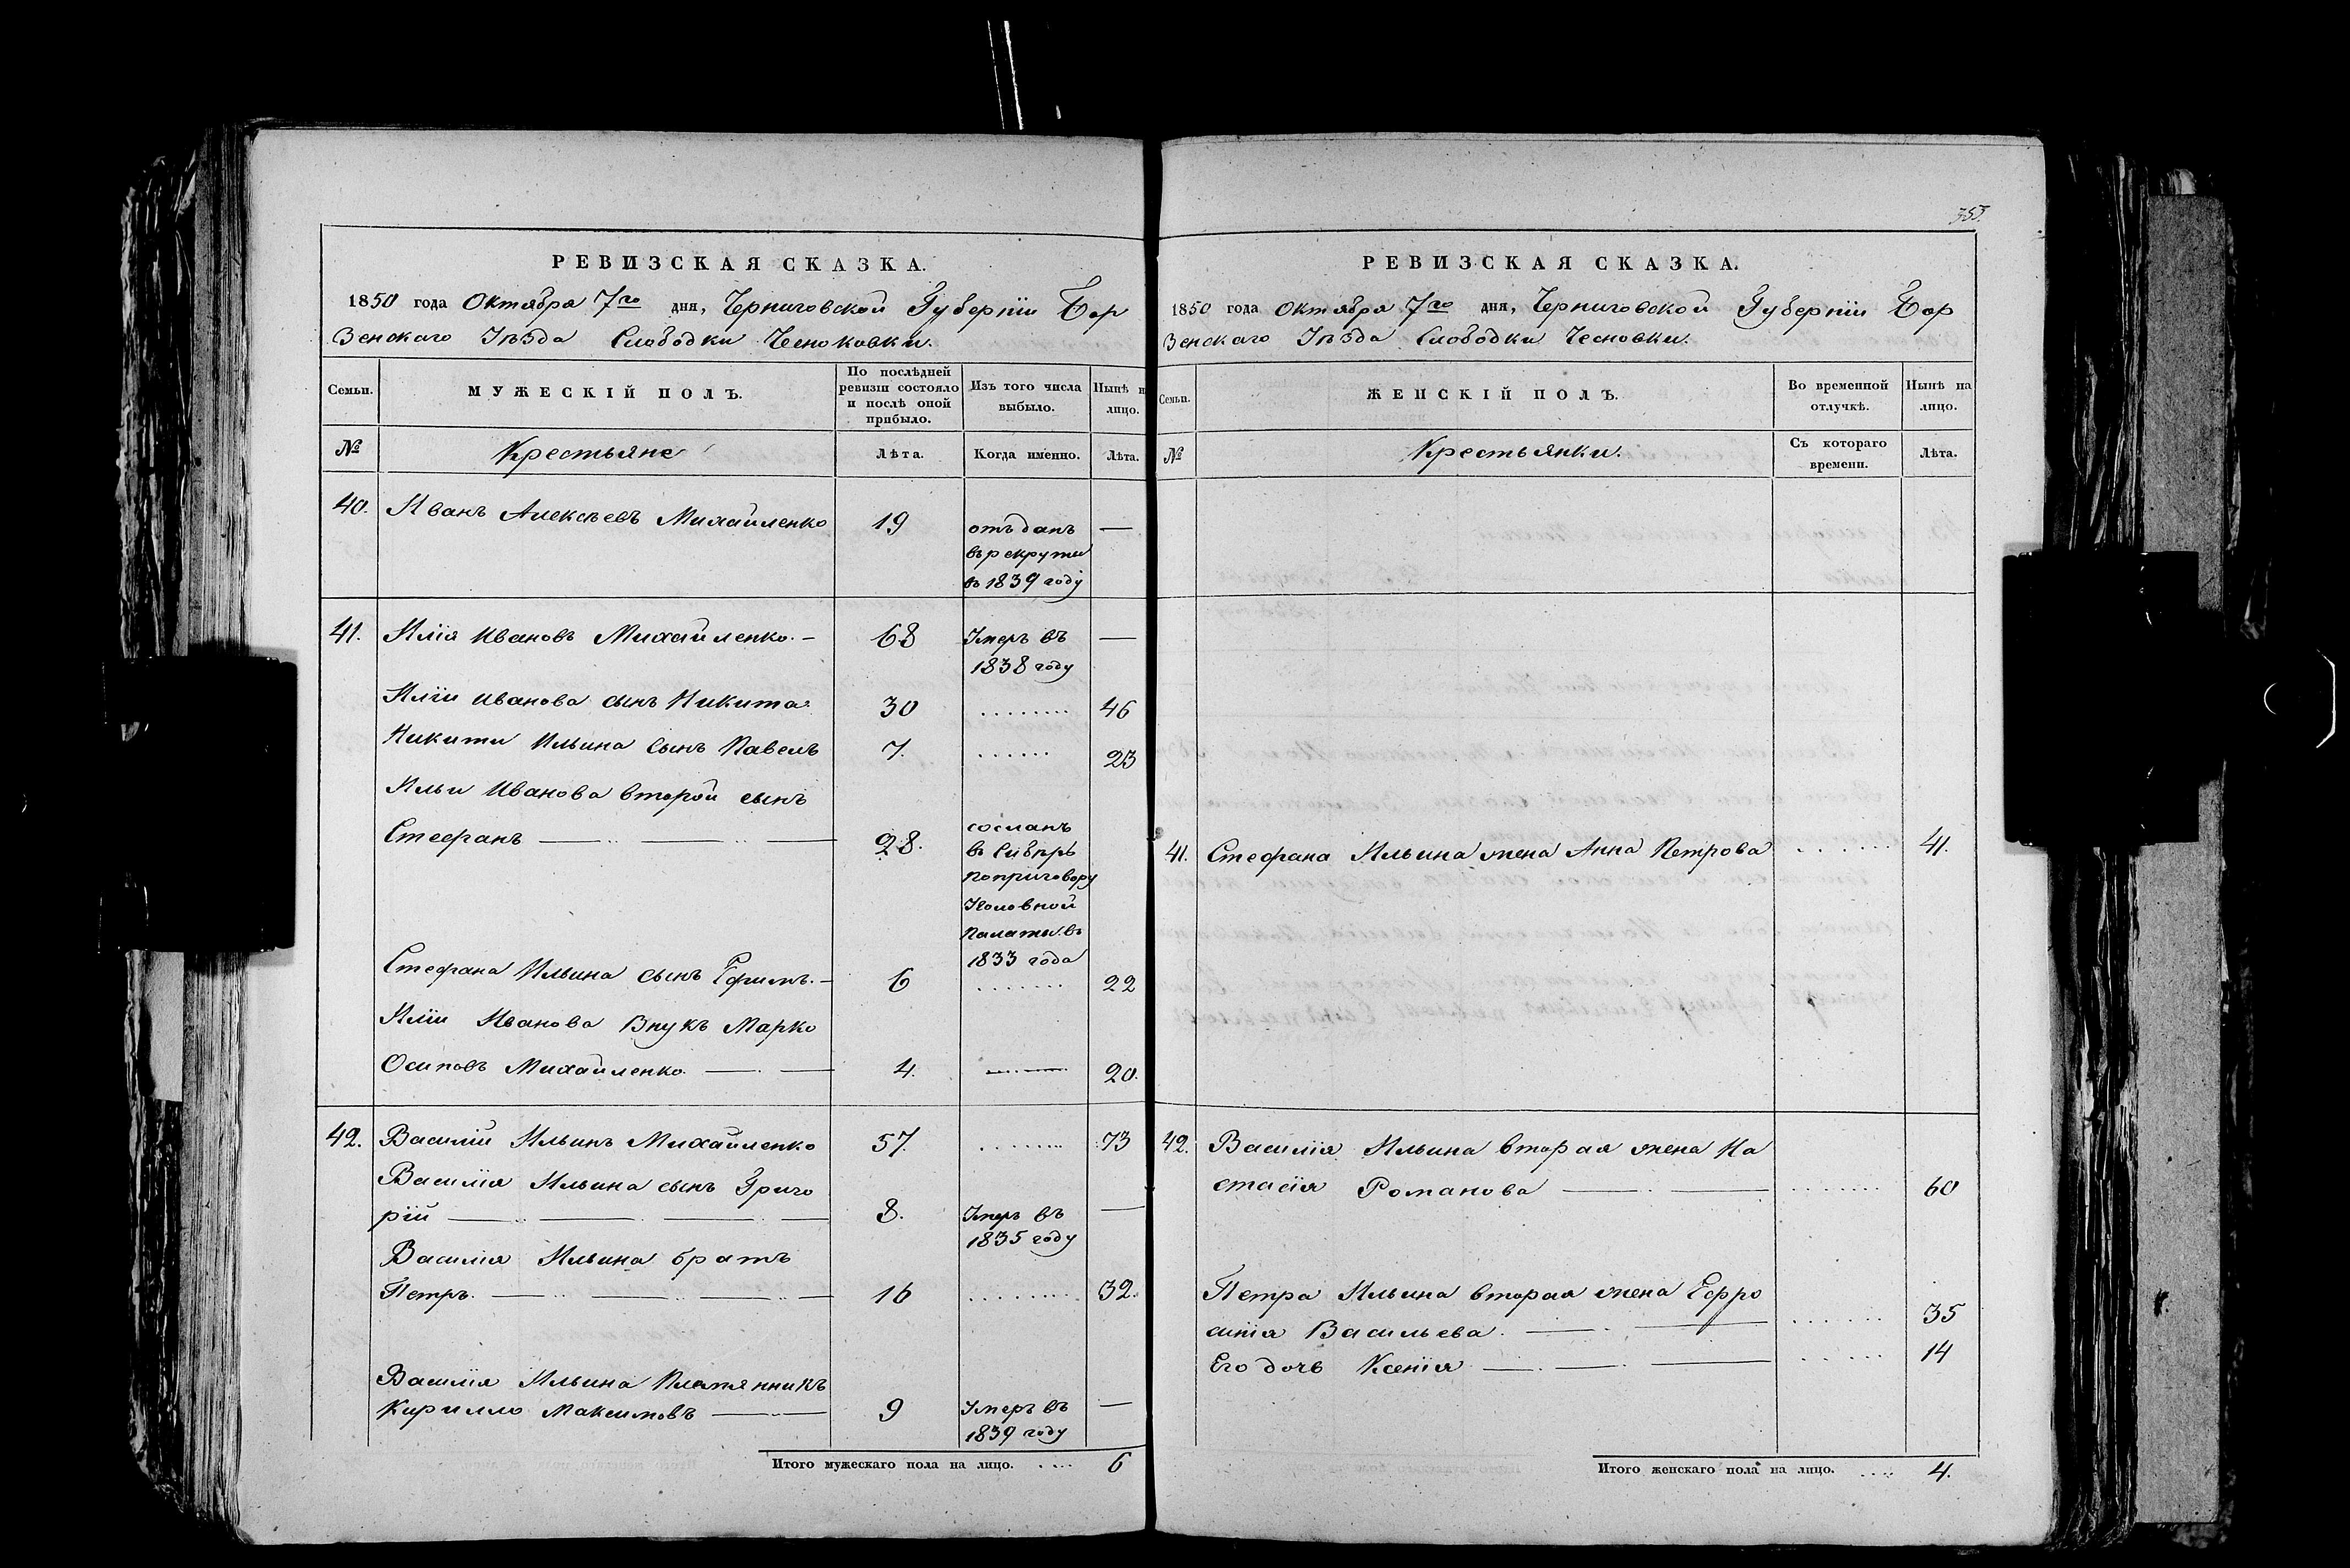 РЕВИЗСКАЯ СКАЗКА.
1850 года Октября 7го дня, Черниговской Губерніи Бор
зенскаго Уѣзда Слободки Чесноковки.
Семьи.
МУЖЕСКІЙ ПОЛЪ.
По послѣдней
ревизіи состояло
и послѣ оной
прибыло.
Изъ того числа
выбыло.
Нынѣ н
лицо.
№
Крестьяне
Лѣта.
Когда именно.
Лѣта.
40. Иванъ Алексѣевъ Михайленко 19 отъданъ —
въ рекруты
въ 1839 году
41. Илія Ивановъ Михайленко. — 68 Умеръ въ —
1838 году
Иліи Иванова сынъ Никита 30 ........ 46
Никиты Ильина сынъ Павелъ 7. ...... 23
Ильи Иванова второй сынъ
Стефанъ — 28. сосланъ
въ Сибирь
по приговору
Уголовной
Палаты въ
1833 года
Стефана Ильина сынъ Ефимъ. — 6 ....... 22
Иліи Иванова Внукъ Марко
Осиповъ Михайленко — 4. — 20.
42. Василій Ильинъ Михайленко 57. ........ 73
Василія Ильина сынъ Григо
рій — 8. Умеръ въ —
1835 году
Василія Ильина братъ
Петръ. — 16 ........ 32.
Василія Ильина Племянникъ
Кирилло Максимовъ — 9 Умеръ въ —
1839 году
Итого мужескаго пола на лицо. .... 6
353.
РЕВИЗСКАЯ СКАЗКА.
1850 года Октября 7го дня, Черниговской Губерніи Бор
зенскаго Уѣзда Слободки Чесновки.
Семьи.
ЖЕНСКІЙ ПОЛЪ.
Во временной
отлучкѣ.
Нынѣ на
лицо.
№
Крестьянки.
Съ котораго
времени.
Лѣта.
41. Стефана Ильина жена Анна Петрова ...... 41.
42. Василія Ильина вторая жена На
стасія Романова — ........ 60
Петра Ильина вторая жена Ефро
синія Васильева. — ...... 35
Его дочь Ксенія — ...... 14
Итого женскаго пола на лицо. .... 4.